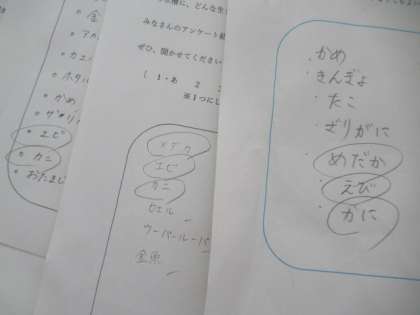 ・金
・カエ
・ホタル
・かめ
・ザリ
・エビ
・カニ
・おたまじ
水槽に、どんな生
みなさんのアンケート結
ぜひ、聞かせてください
( 1・あ 2
※1つにし
メダカ
エビ
カニ
カエル
ウーパールーパ
金魚
・かめ
・きんぎょ
・たこ
・ざりがに
・めだか
・えび
・かに